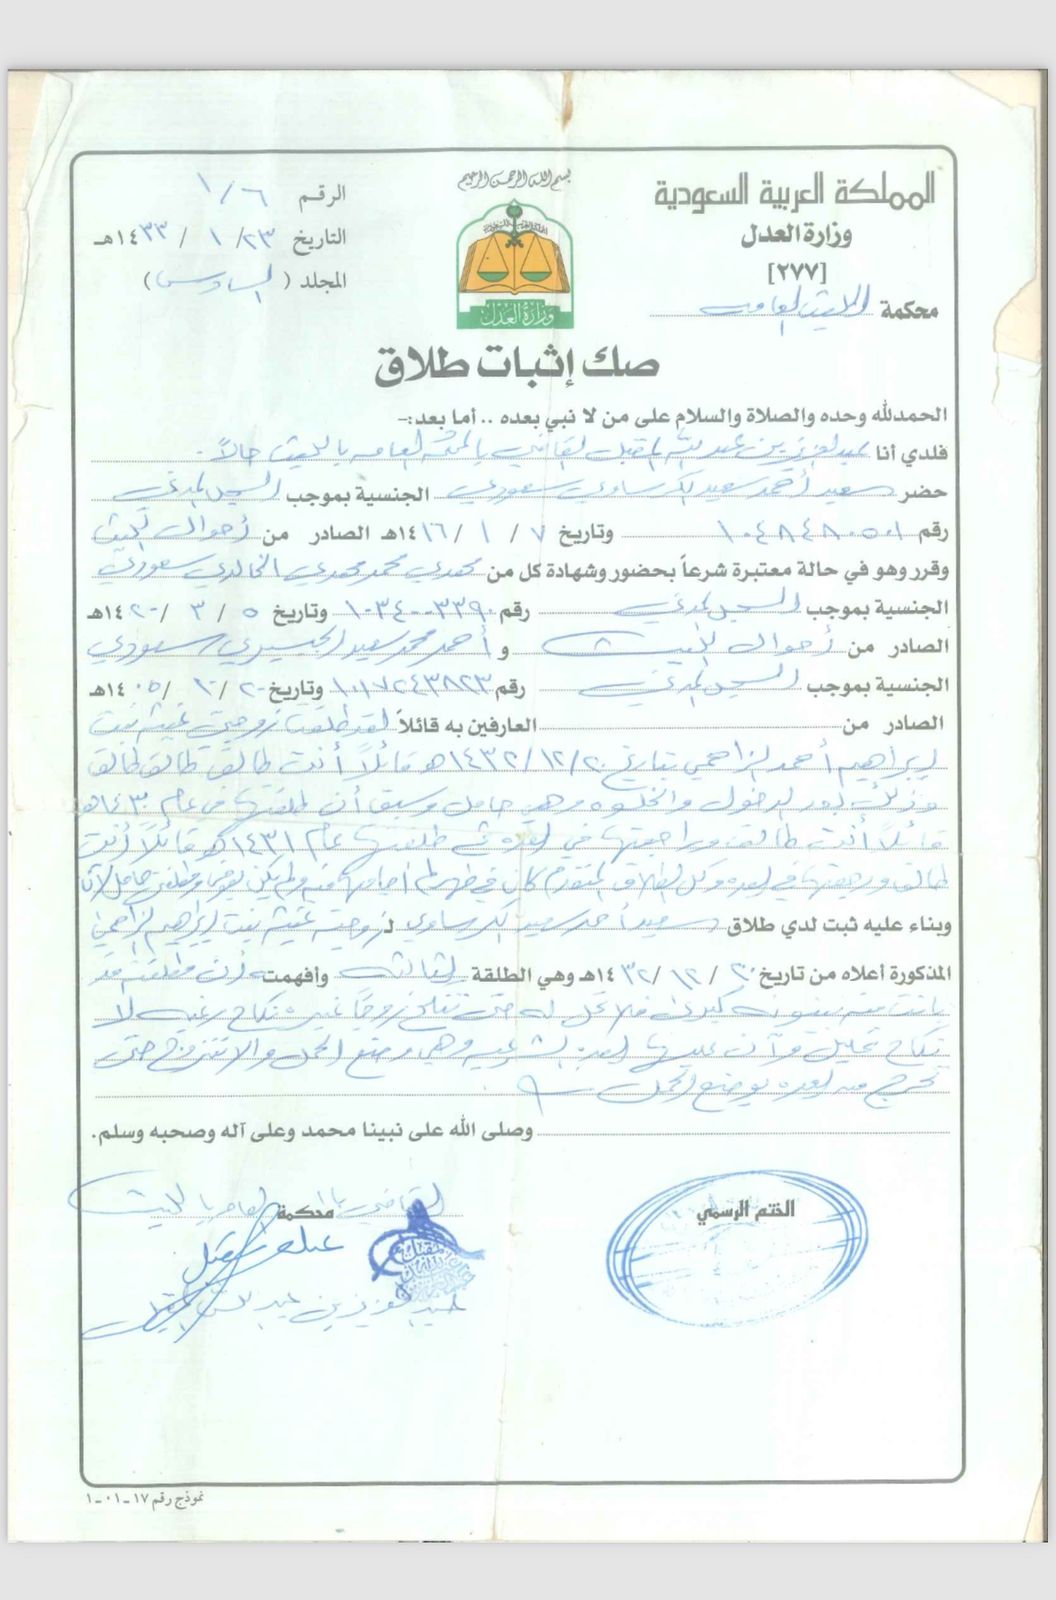 بسم الله الرحمن الرحيم
المملكة العربية السعودية
وزارة العدل
[٢٧٧]
محكمة الليث العامة
الرقم ١/٦
التاريخ ٢٣/ ١ / ١٤٣٣هـ
المجلد ( السادس )
وزارة العدل
صك إثبات طلاق
الحمدلله وحده والصلاة والسلام على من لا نبي بعده .. أما بعد:-
فلدي أنا عبدالعزيز بن عبدالله المقبل القاضي بالمحكمة العامة بالليث حالاً
حضر سعيد أحمد سعيد الكرساوي سعودي الجنسية بموجب السجل المدني
رقم ١٠٤٨٤٨٠٥٠١ وتاريخ ٧ / ١ /١٤١٦هـ الصادر من أحوال الليث
وقرر وهو في حالة معتبرة شرعاً بحضور وشهادة كل من محمدي محمد محمدي الخالدي سعودي
الجنسية بموجب السجل المدني رقم ١٠٣٤٠٠٣٣٩٠ وتاريخ ٥ / ٣ /١٤٢٠هـ
الصادر من أحوال الليث و أحمد محمد سعيد سعودي
الجنسية بموجب السجل المدني رقم ١٠١٧٢٤٣٨٢٣ وتاريخ ٢٠/ /١٤٠٥هـ
الصادر من العارفين به قائلاً لقد طلقت زوجتي بنت
إبراهيم أحمد الزاحمي بتاريخ ٢٠/ ١٢/ ١٤٣٢هـ قائلاً أنت طالق طالق طالق
وذلك بعد الدخول والخلوه وهي حامل وسبق أن طلقتها في عام ١٤٣٠هـ
قائلاً أنت طالق وراجعتها في العده ثم طلقتها عام ١٤٣١هـ قائلاً أنت
طالق ورجعتها في العده وكل الطلاق المتقدم كان في طهر لم اجامعها فيه ولم يكن بعوض ومطلقتي حامل الآن
وبناء عليه ثبت لدي طلاق سعيد أحمد سعيد الكرساوي لزوجته بنت إبراهيم الزاحمي
المذكورة أعلاه من تاريخ ٢٠ / ١٢ /١٤٣٢هـ وهي الطلقة الثالثة وأفهمته أن مطلقته قد
بانت منه بينونه كبرى فلا تحل له حتى تنكح زوجاً غيره نكاح رغبه لا
نكاح تحليل وأن عليها العده الشرعيه وهي وضع الحمل وألا تتزوج حتى
تخرج من العده بوضع الحمل
وصلى الله على نبينا محمد وعلى آله وصحبه وسلم.
الختم الرسمي
القاضي بالمحكمة العامه بالليث
عبدالعزيز بن عبدالله المقبل
نموذج رقم ١٧-٠١-١